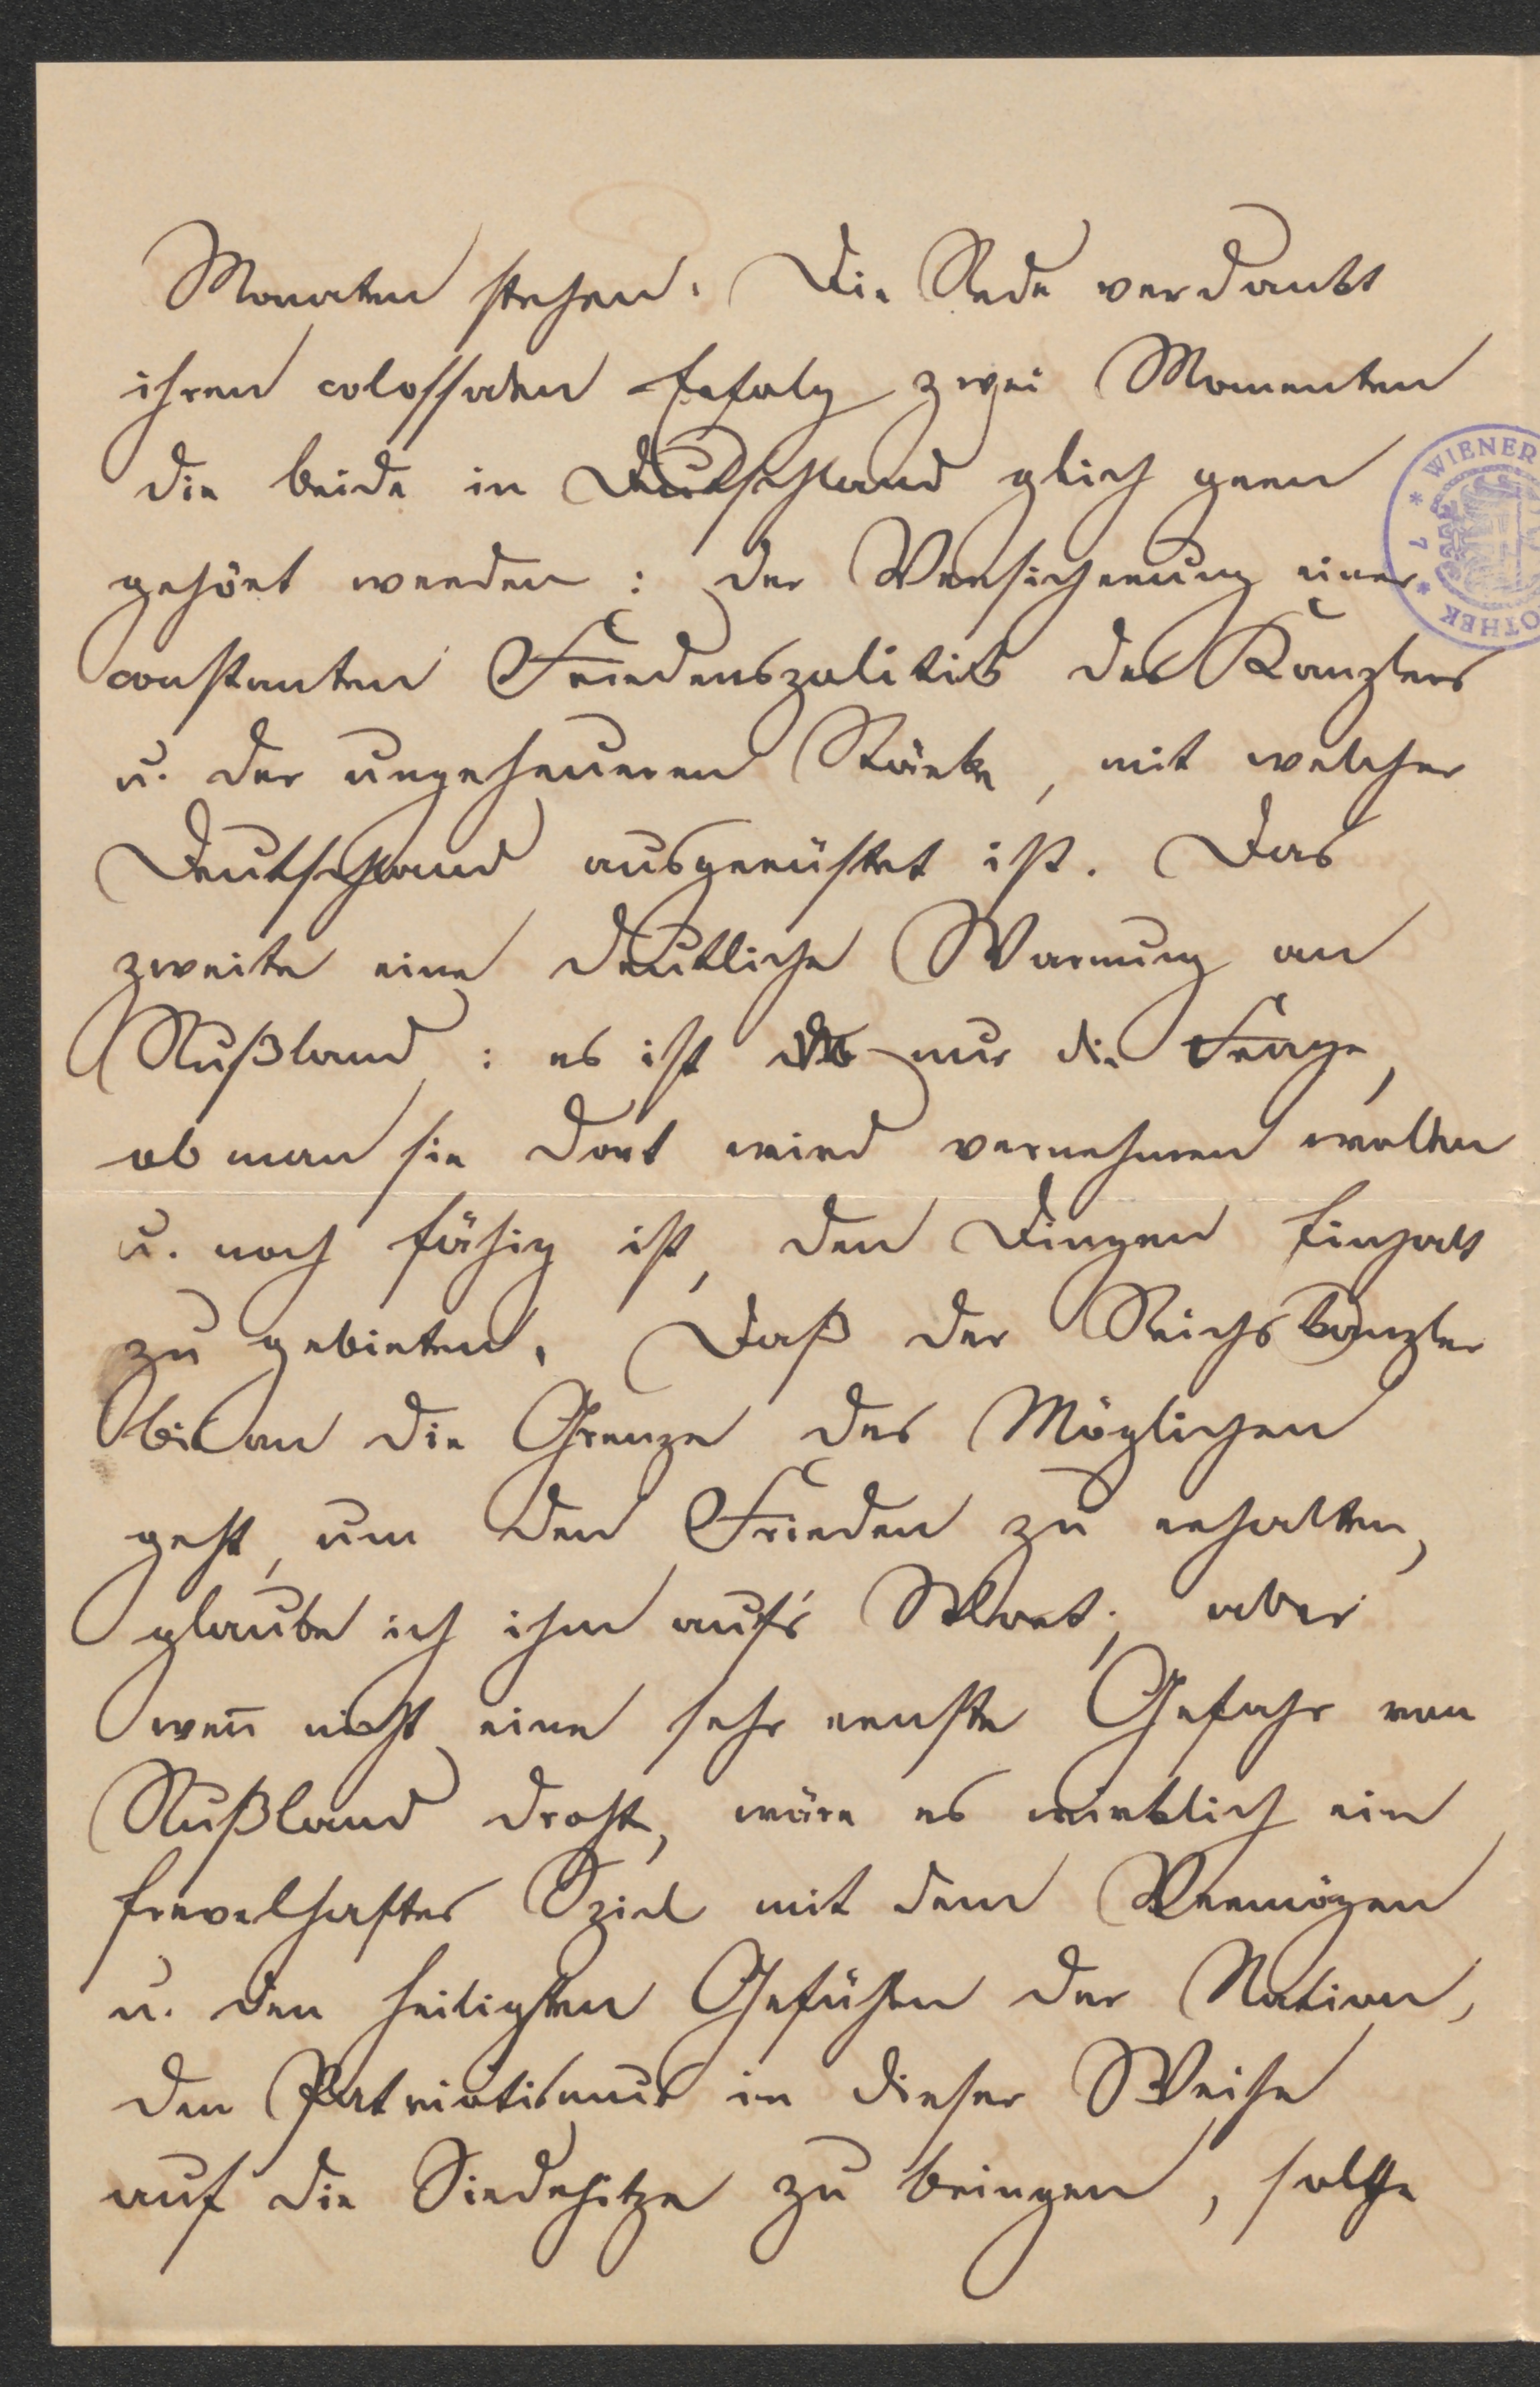 Monaten stehen. Die Rede verdankt
ihren colossalen Erfolg zwei Momenten
die beide in Deutschland glich gern
gehört werden: der Versicherung einer
constanten Friedenspolitik des Kanzlers
u. der ungeheueren Stärke, mit welcher
Deutschland ausgerüstet ist. Das
zweite eine deutliche Warnung an
Rußland: es ist nur die Frage,
ob man sie dort wird vernehmen wollen
u. noch fähig ist, den Dingen Einhalt
zu gebieten. Daß der Reichskanzler
bis an die Grenze des Möglichen
geht, um den Frieden zu erhalten,
glaube ich ihm auf's Wort; aber
wen̄ nicht eine sehr ernste Gefahr von
Rußland droht, wäre es wirklich ein
frevelhaftes Spiel mit dem Vermögen
u. den heiligsten Gefühlen der Nation,
den Patriotismus in dieser Weise
auf die Siedehitze zu bringen, solche
WIENER
OTHEK
* 7 *